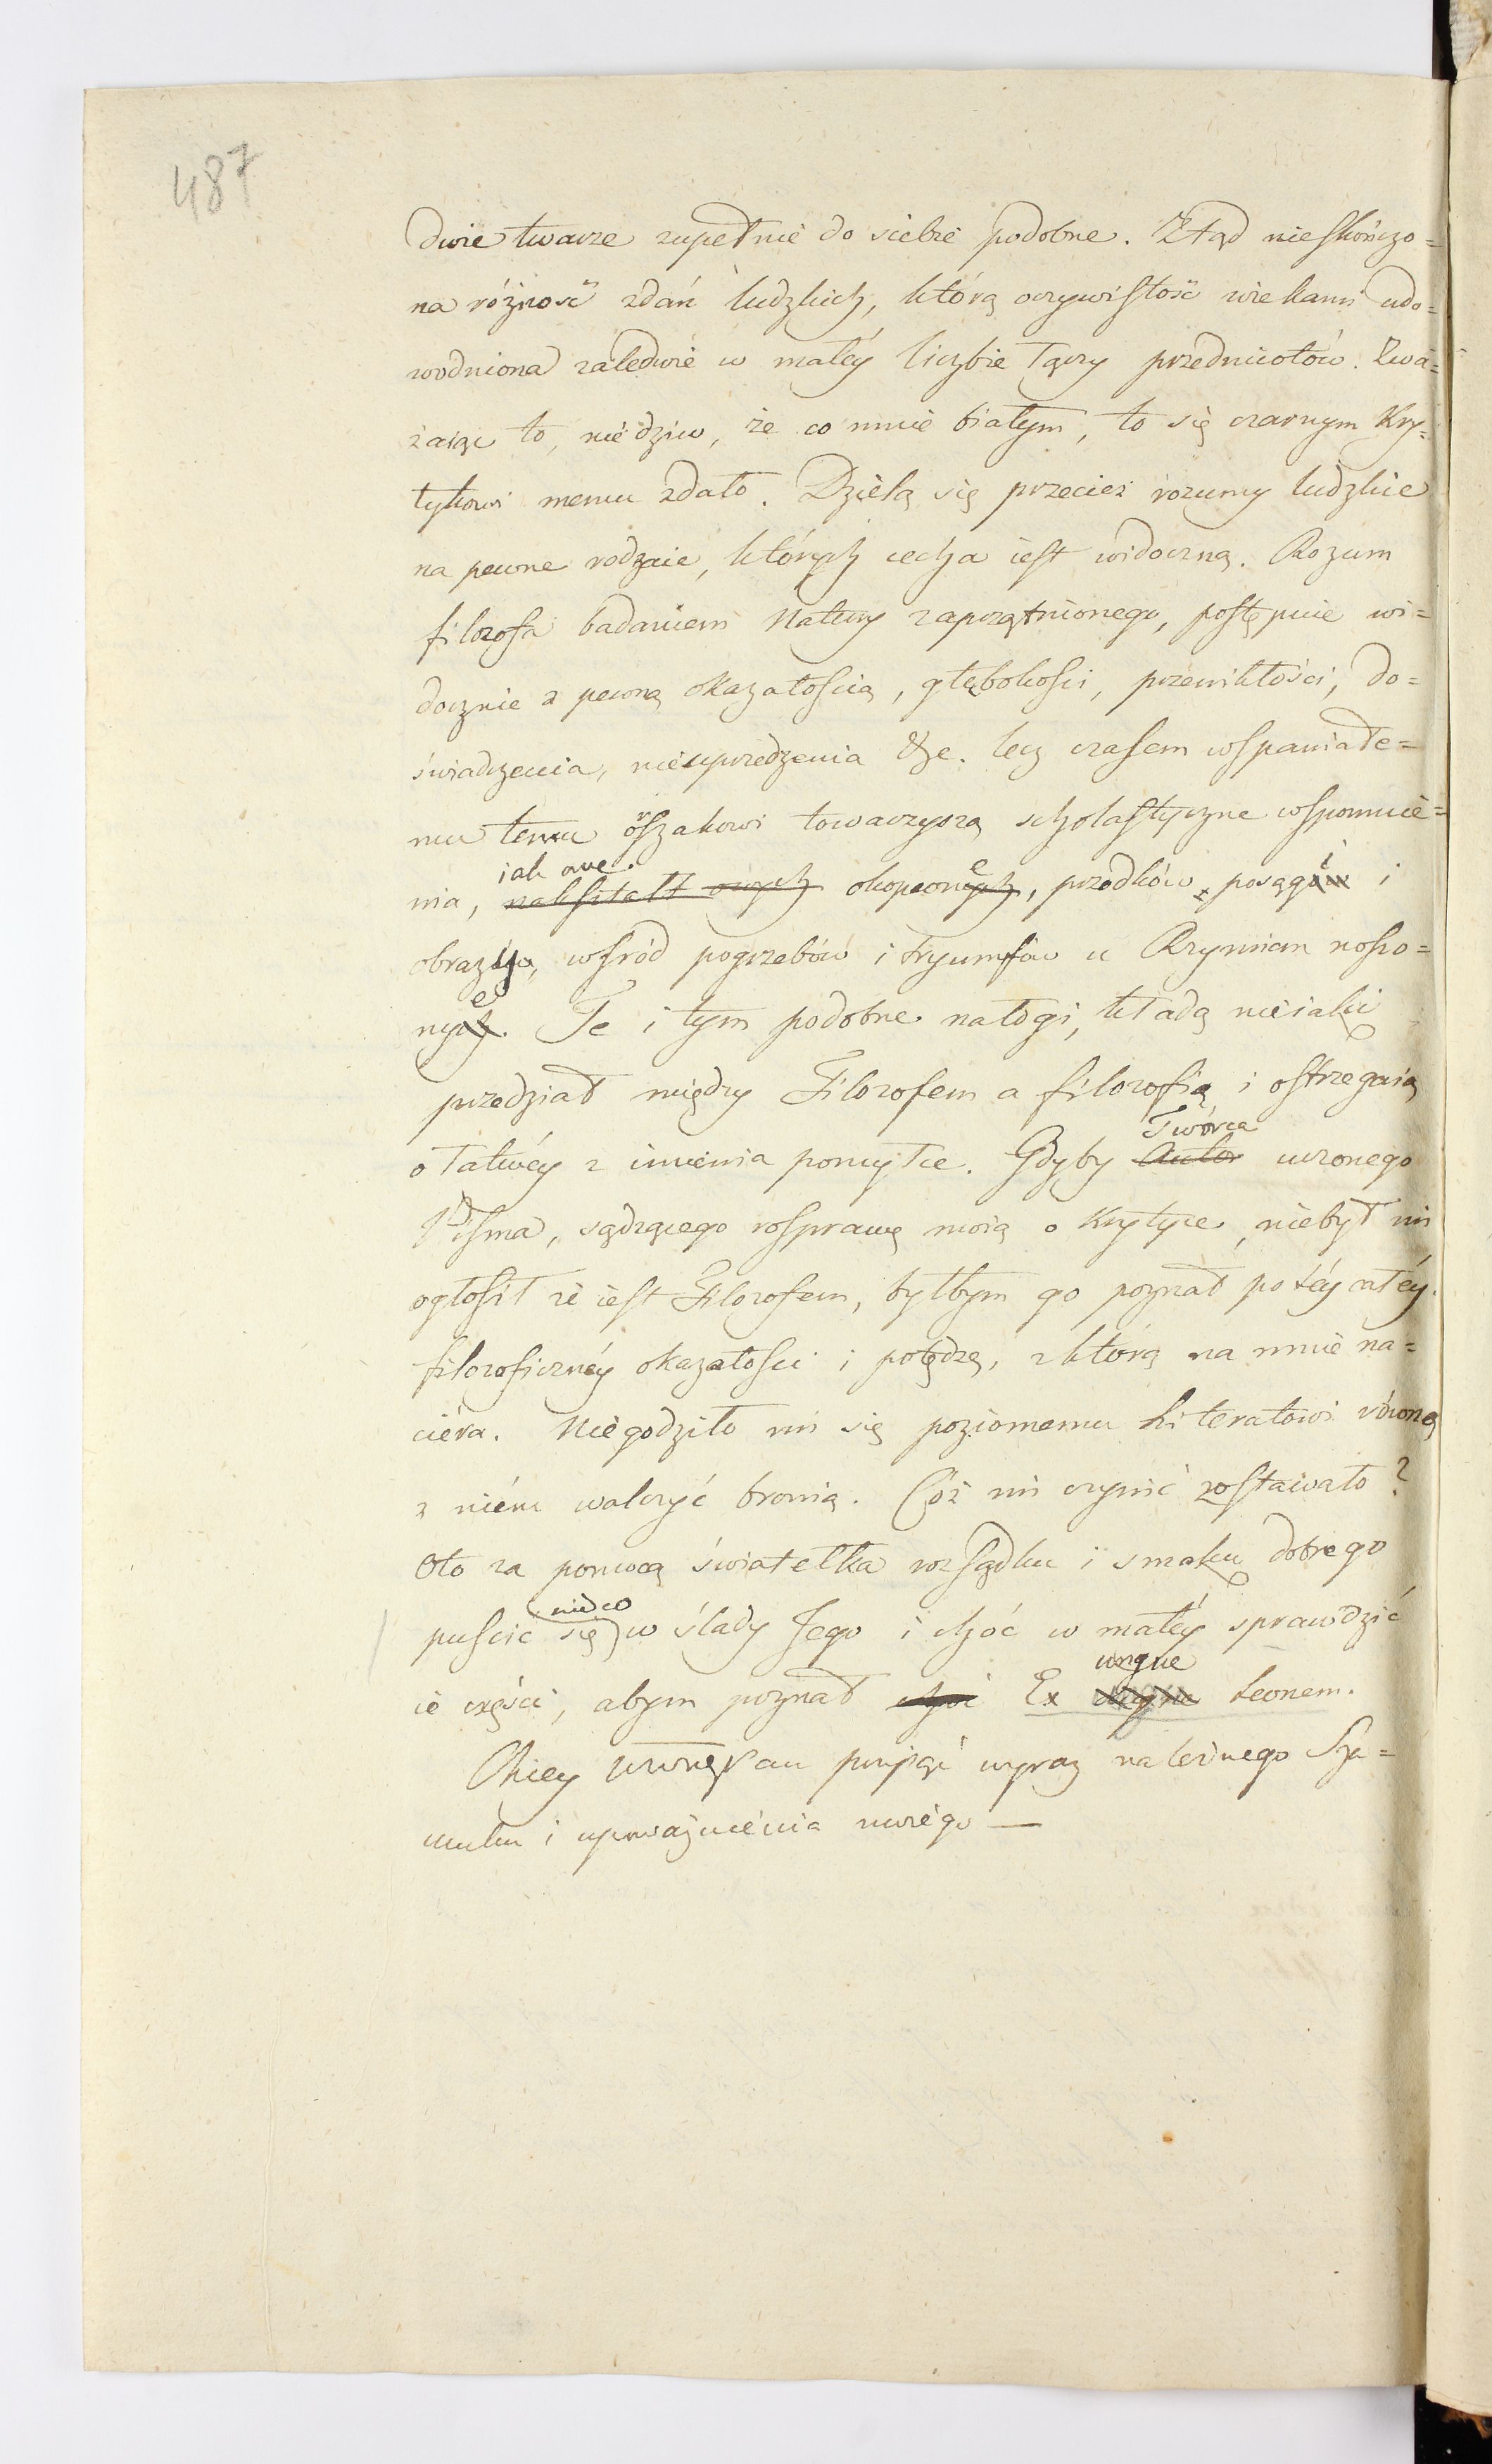 487
dwie twarze zupełnie do siebie podobne. Ztąd nieskończo=
na różność zdań ludzkich, którą oczywistość wiekami udo=
wodniona zaledwie w małéy liczbie łączy przedmiotów. Zwa=
żaiąc to, nie dziw, że co mnie białym, to się czarnym Kry=
tykowi memu zdało. Dzielą się przecież rozumy ludzkie
na pewne rodzaie, których cecha iest widoczną. Rozum
filozofa badaniem Natury zaprzątnionego, postępuie wi=
docznie z pewną okazałością, głębokości, przenikłości, do=
świadczenia, nieuprzedzenia &c. lecz czasem wspaniałe=
mu temu orszakowi towarzyszą scholastyczne wspomnie=
iak owe
nia, nakształt owych okopconych e, przodków posągów i i
obrazy, wśród pogrzebów i tryumfów u Rzymian noszo=
nych e. Te i tym podobne nałogi, kładą nieiaki
przedział między Filozofem a filozofią i ostrzegaią
Twórca
o łatwéy z imienia pomyłce. Gdyby Autor uczonego
Pisma, sądzącego rosprawę moią o Krytyce, niebył mi
ogłosił że iest Filozofem, byłbym go poznał po téy całéy
filozoficznéy okazałości i potędze, z którą na mnie na=
ciéra. Niegodziło mi się poziomemu Literatowi równą
z niém walczyć bronią. Cóż mi czynić zostawało?
Oto za pomocą światełka rozsądku i smaku dobrego
nieco
puścić się w ślady Jego i choć w małéy sprawdzić
ungue
ie części, abym poznał choć Ex Leonem.
Chciey przyjąć wyraz należnego Sza=
cunku i uproważnienia mciégo —